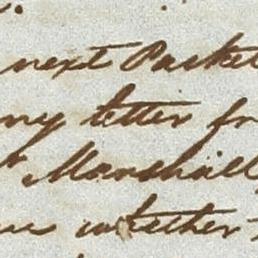 next Packet
ny letter fr
Marshall
whether